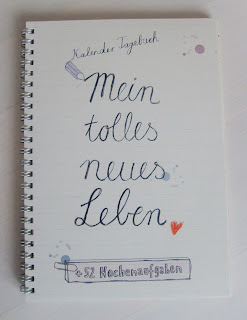 Kalender Tagebuch
Mein
tolles
neues
Leben
+ 52 Wochenaufgaben